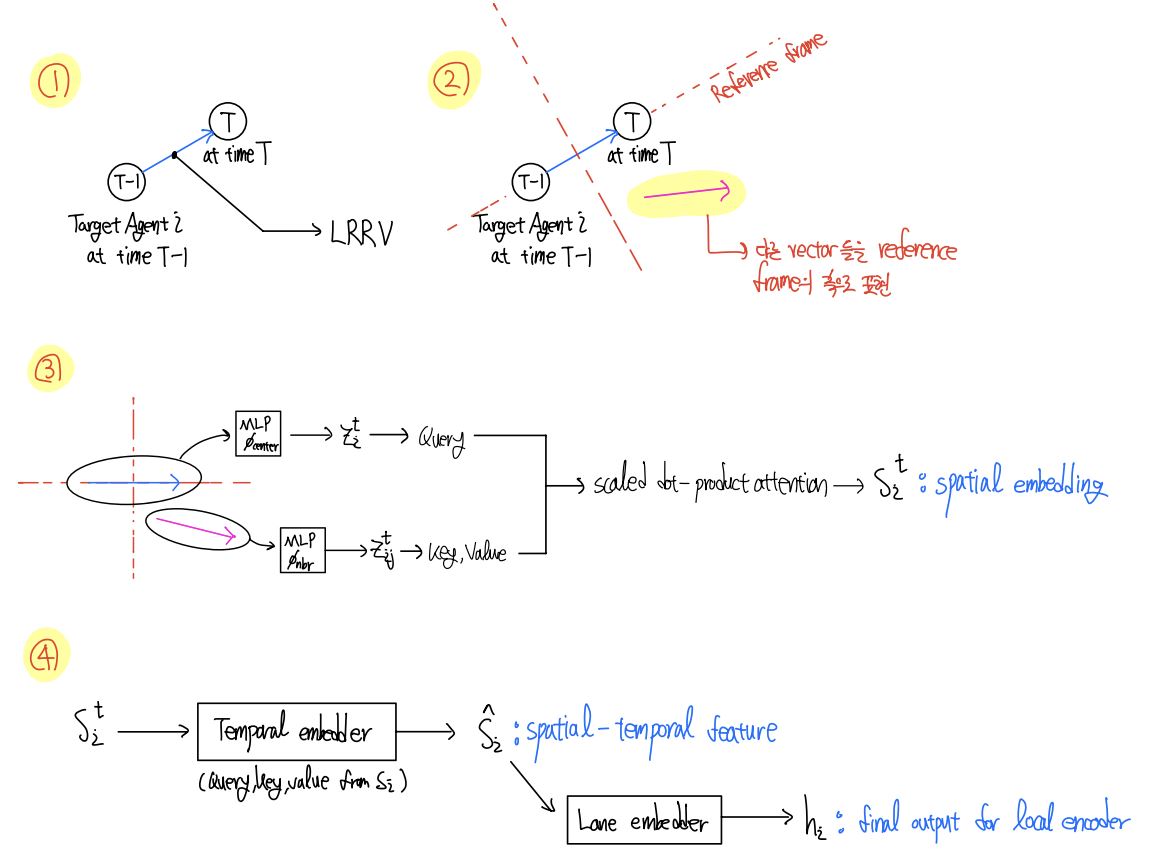 ①
T
at time T
T-1
Target Agent i
at time T-1
LRRV
②
Reference frame
T
at time T
T-1
Target Agent i
at time T-1
다른 vector들을 reference
frame의 축으로 표현
③
MLP
ϕcenter
z_i^t
Query
scaled dot-product attention
S_i^t : spatial embedding
MLP
ϕnbr
z_ij^t
key, value
④
S_i^t
Temporal embedder
(query, key, value from S_i)
Ŝ_i : spatial-temporal feature
Lane embedder
h_i : final output for local encoder